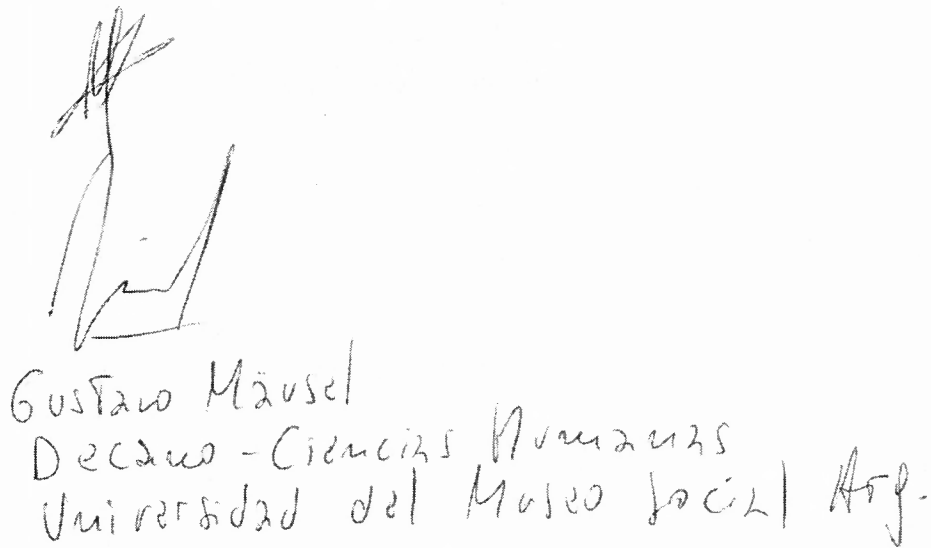 Gustavo Mäusel
Decano - Ciencias Humanas
Universidad del Museo Social Arg.